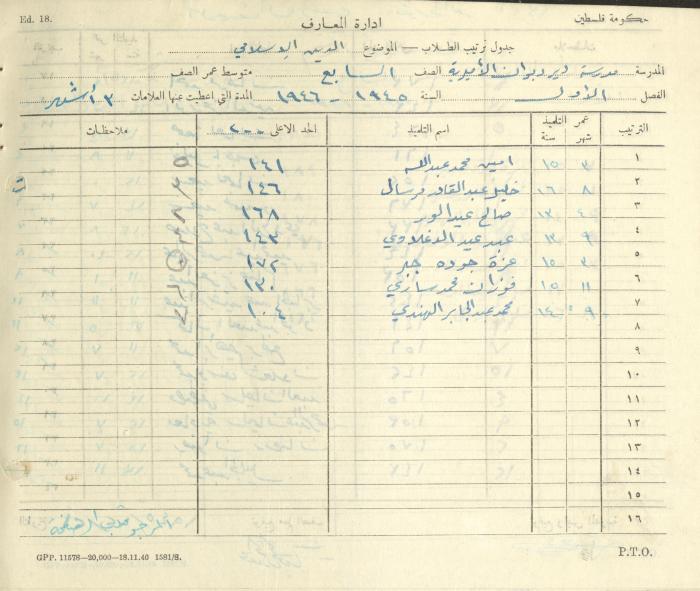 Ed. 18.
ادارة المعارف
حكومة فلسطين
جدول ترتيب الطلاب — الموضوع الدين الإسلامي
المدرسة مدرسة دير ديوان الأميرية الصف السابع متوسط عمر الصف
الفصل الأول السنة ١٩٤٥ - ١٩٤٦ المدة التي اعطيت عنها العلامات ٣ أشهر
الترتيب عمر التلميذ شهر سنة اسم التلميذ الحد الاعلى ٢٠٠ ملاحظات
١ ٣ ١٥ امين محمد عبدالله ١٤١
٢ ٨ ١٦ خليل عبد القادر ١٤٦
٣ ٤ ١٣ صالح ١٦٨
٤ ٩ ١٣ عبد ١٤٣
٥ ٣ ١٥ عزة جوده جبر ١٧٢
٦ ١١ ١٥ فوزان محمد ١٣٠
٧ ٩ ١٤ محمد عبد الجابر الهندي ١٠٤
٨
٩
١٠
١١
١٢
١٣
١٤
١٥
١٦
GPP. 11578—20,000—18.11.40 1581/S.
P.T.O.